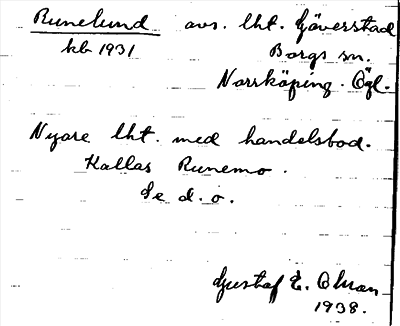 Runelund avs. lht. Gäverstad
kb 1931 Borgs sn.
Norrköping. Ögl.
Nyare lht. med handelsbod.
Kallas Runemo.
Se d. o.
Gustaf E. Olman
1938.